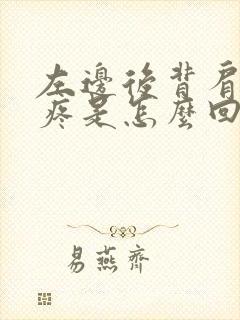 左邊後背肩
疼是怎麼回
易燕齊